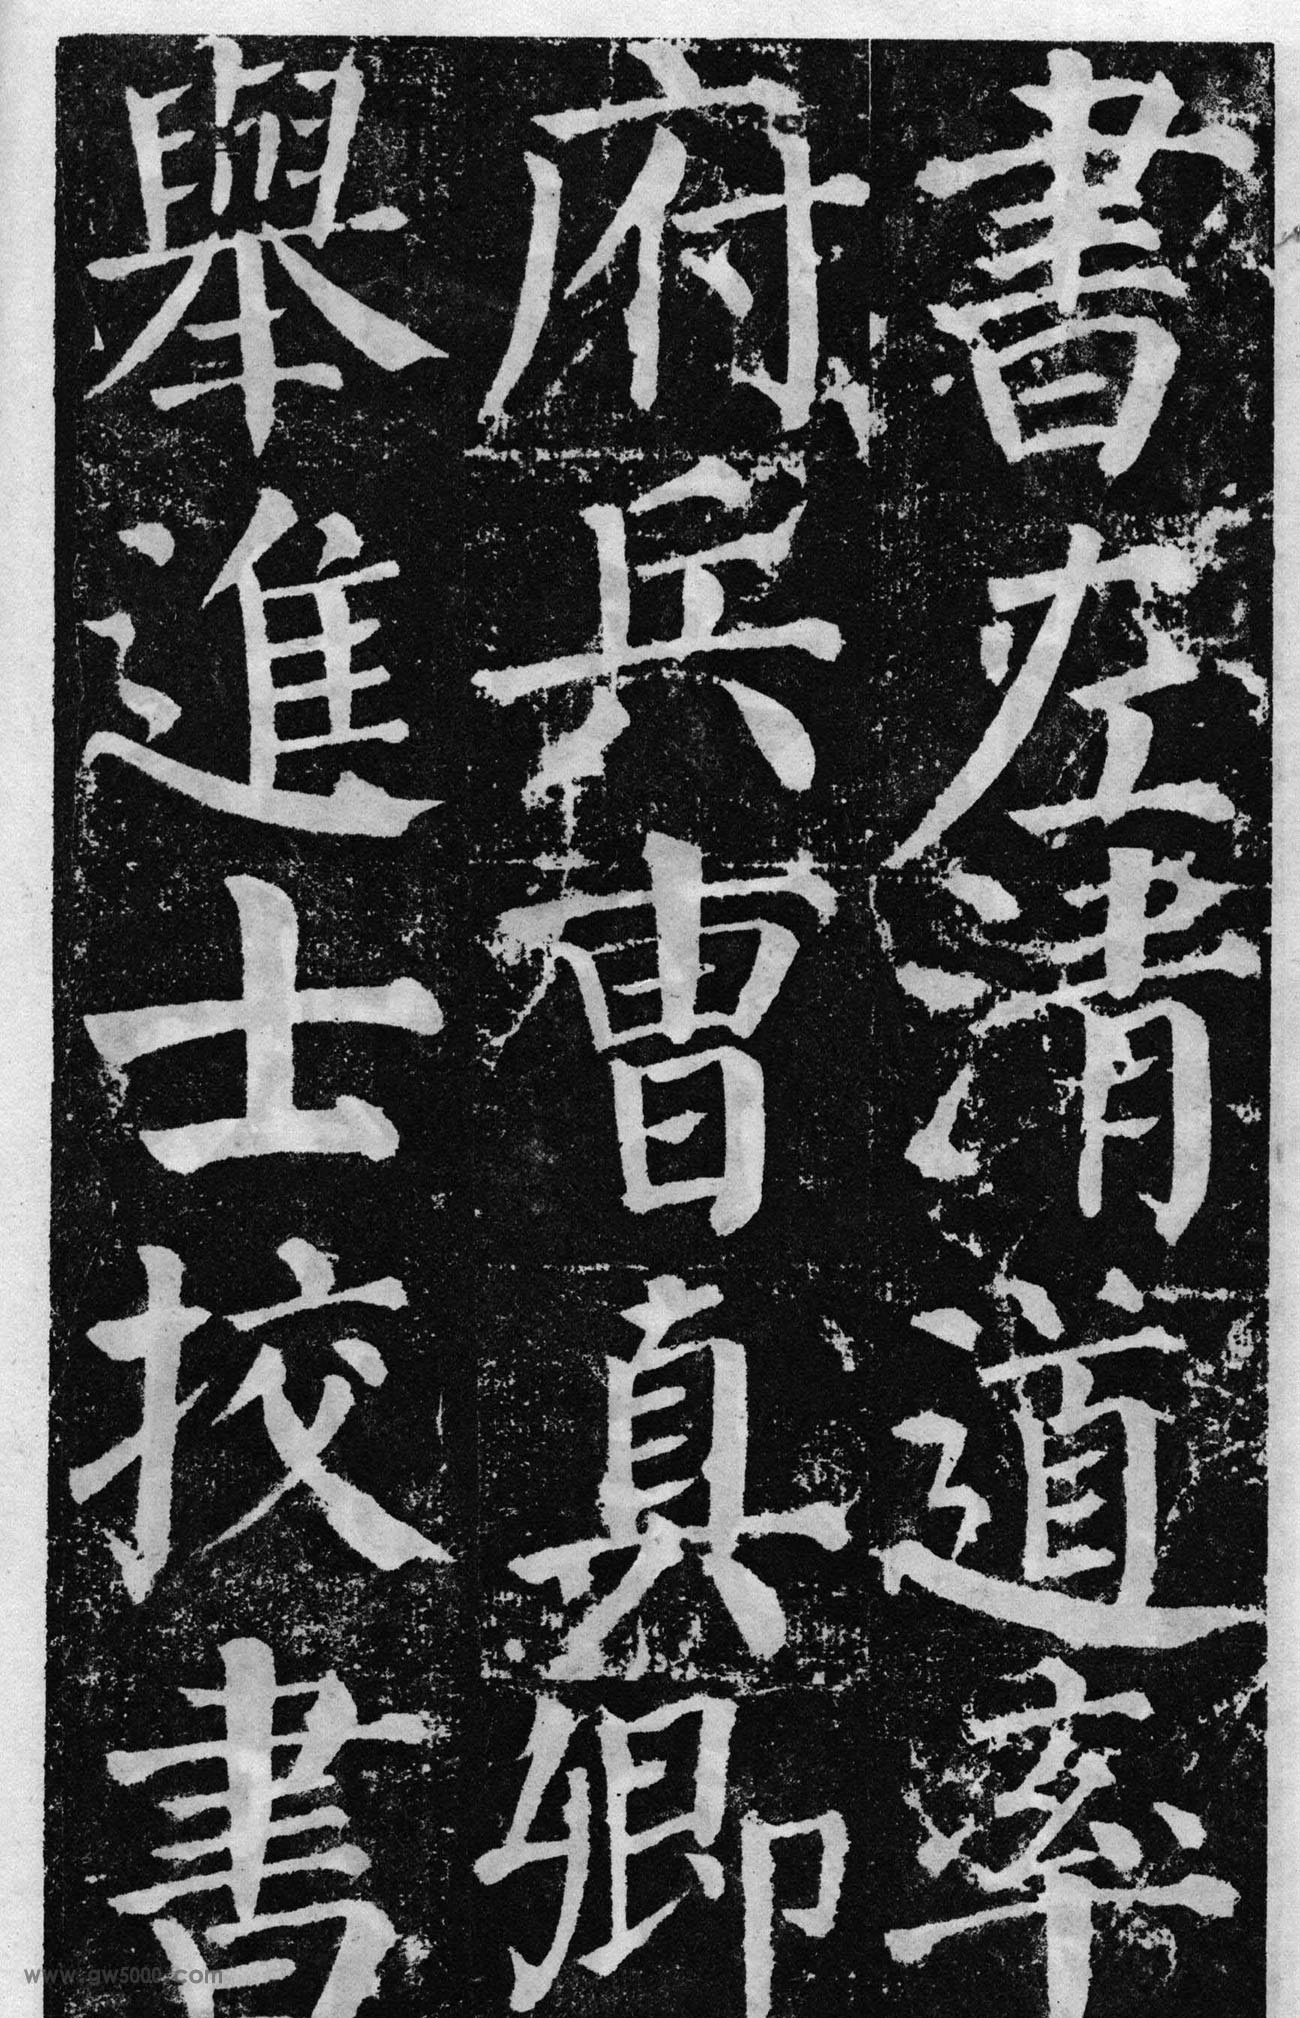 書左清道率
府兵曹真卿
舉進士挍書
www.gw5000.com